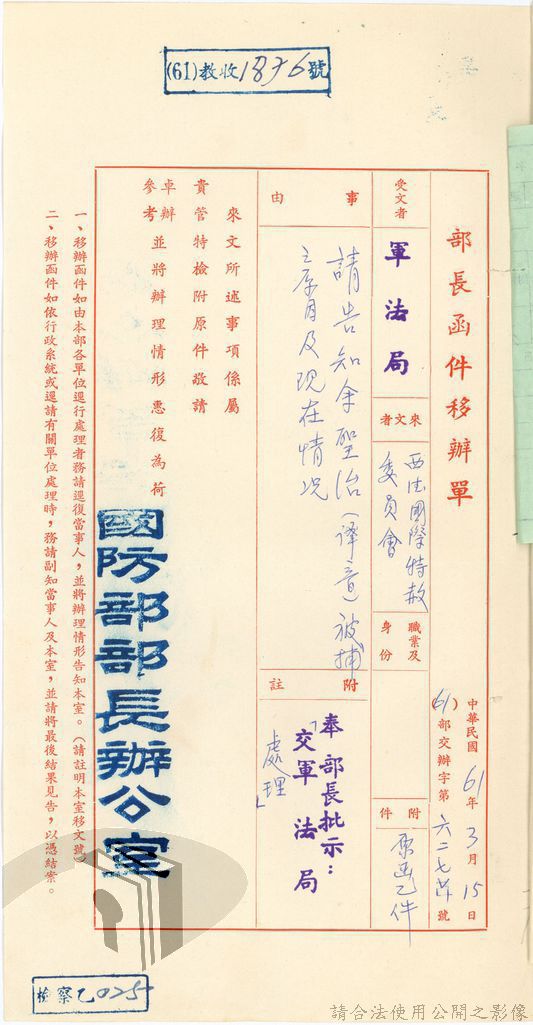 (61)教收1876號
部長函件移辦單
中華民國61年3月15日
(61)部交辦字第六二七號
受文者
軍法局
來文者
西德國際特赦
委員會
職業及
身份
附件
原函乙件
事由
請告知余聖治(譯音)被捕
之原因及現在情況
附註
奉 部長批示：
「交軍法局
處理」
來文所述事項係屬
貴管特檢附原件敬請
卓辦
參考
並將辦理情形惠復為荷
國防部部長辦公室
一、移辦函件如由本部各單位逕行處理者務請逕復當事人，並將辦理情形告知本室。（請註明本室移文號）
二、移辦函件如依行政系統或還請有關單位處理時，務請副知當事人及本室，並請將最後結果見告，以憑結案。
檢察乙025
請合法使用公開之影像